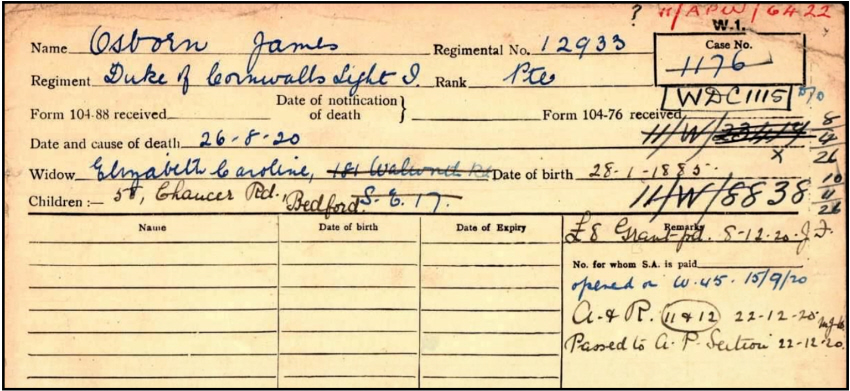 ? 11/APW/6422
W.1.
Name Osborn James Regimental No. 12933 Case No.
1176
Regiment Duke of Cornwalls Light I. Rank Pte
WDC1115
Form 104-88 received Date of notification of death } Form 104-76 received
11/W/
Date and cause of death 26-8-20
X
8
4
26
Widow Elizabeth Caroline, 181 Walworth Rd Date of birth 28-1-1885.
10
11
26
Children :— 58, Chaucer Rd., Bedford. S.E.17. 11/W/8838
Name Date of birth Date of Expiry Remarks
£8 Grant pd. 8-12-20. J.F.
No. for whom S.A. is paid
opened on W.45. 15/9/20
A. & R. 11 & 12 22-12-20.
Passed to A.P. Section 22-12-20.